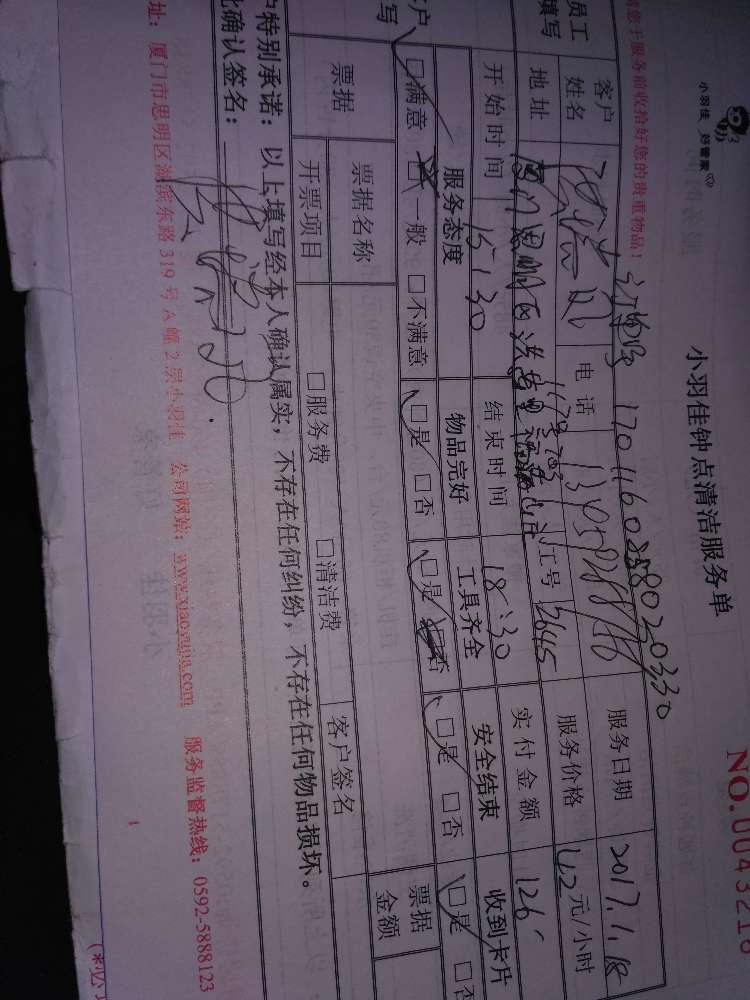 小羽佳 好管家
小羽佳钟点清洁服务单
NO.0043218
您于服务前收拾好您的贵重物品！
1701160258020330
员工
填写
客户
姓名
电话
服务日期
2017.1.18
地址
工号
3645
服务价格
42元/小时
开始时间
15:30
结束时间
18:30
实付金额
126
客户
写
服务态度
物品完好
工具齐全
安全结束
收到卡片
□满意 □一般 □不满意
□是 □否
□是 □否
□是 □否
□是 □否
票据
票据名称
客户签名
票据
金额
开票项目
□服务费 □清洁费
户特别承诺：以上填写经本人确认属实，不存在任何纠纷，不存在任何物品损坏。
此确认签名：
址：厦门市思明区湖滨东路 319 号 A 幢 2 层小羽佳 公司网站：www.xiaoyujia.com 服务监督热线：0592-5888123